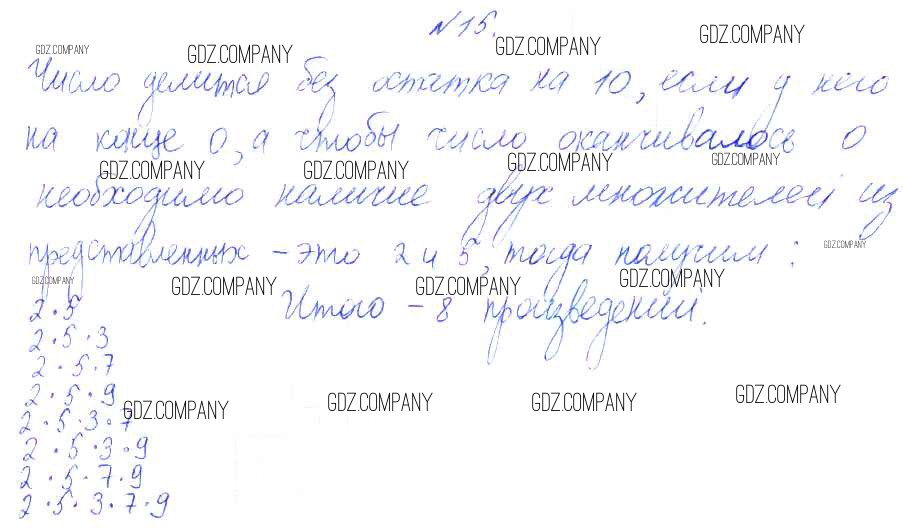 N 15.
GDZ.COMPANY GDZ.COMPANY GDZ.COMPANY GDZ.COMPANY
Число делится без остатка на 10, если у него
на конце 0, а чтобы число оканчивалось 0
GDZ.COMPANY GDZ.COMPANY GDZ.COMPANY GDZ.COMPANY
необходимо наличие двух множителей из
представленных - это 2 и 5, тогда получим:
GDZ.COMPANY
GDZ.COMPANY GDZ.COMPANY GDZ.COMPANY GDZ.COMPANY
2 · 5 Итого - 8 произведений.
2 · 5 · 3
2 · 5 · 7
2 · 5 · 9
GDZ.COMPANY GDZ.COMPANY GDZ.COMPANY GDZ.COMPANY
2 · 5 · 3 · 7
2 · 5 · 3 · 9
2 · 5 · 7 · 9
2 · 5 · 3 · 7 · 9